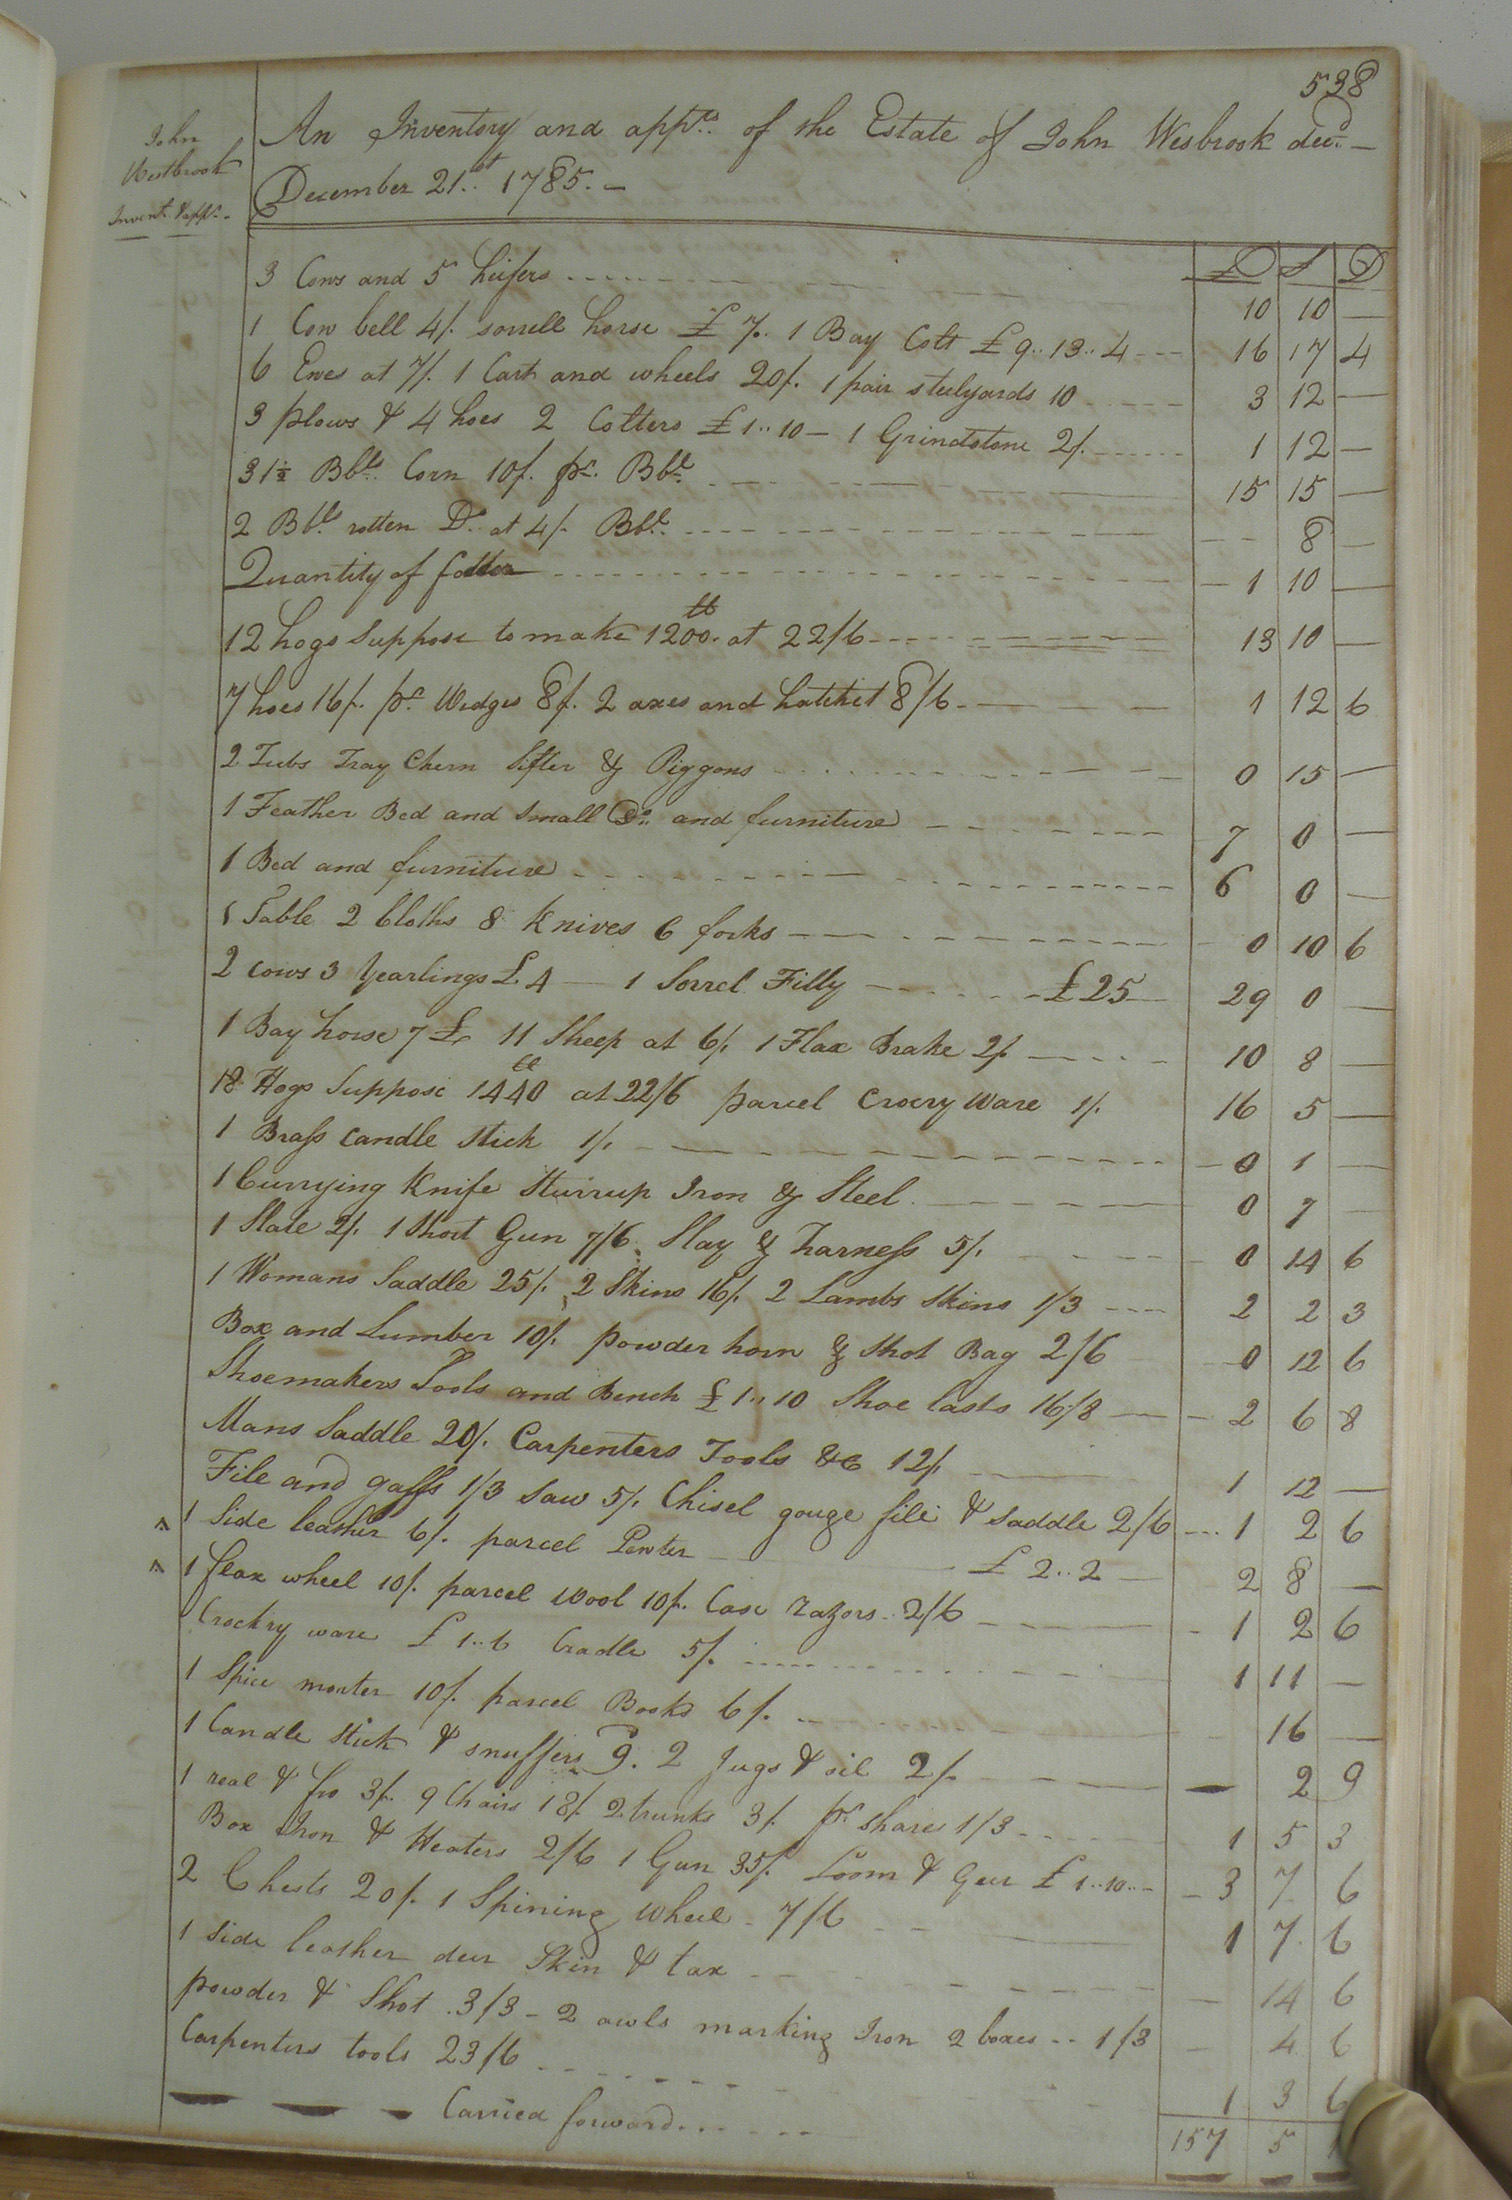 538
John
Westbrook
Invent. & appt.
An Inventory and appts. of the Estate of John Wesbrook decd. —
December 21st. 1785. —
£ S D
3 Cows and 5 heifers 10 10 —
1 Cow bell 4/. sorrell horse £ 7.. 1 Bay Colt £ 9..13..4 16 17 4
6 Ewes at 7/. 1 Cart and wheels 20/. 1 pair steelyards 10 3 12 —
3 plows & 4 hoes 2 Colters £ 1..10 — 1 Grindstone 2/. 1 12 —
31½ Bbls. Corn 10/. pr. Bbl. 15 15 —
2 Bbl. rotten Do. at 4/. Bbl. 8 —
Quantity of fodder 1 10 —
12 hogs Suppose to make 1200 lb. at 22/6 13 10 —
7 hoes 16/. pr. Wedges 8/. 2 axes and hatchet 8/6 1 12 6
2 Tubs Tray Chern Sifter & Piggons 0 15 —
1 Feather Bed and Small Do. and furniture 7 0 —
1 Bed and furniture 6 0 —
1 Table 2 Cloths 8 Knives 6 forks 0 10 6
2 cows 3 Yearlings £ 4 — 1 Sorrel Filly £ 25 29 0 —
1 Bay horse 7 £ 11 Sheep at 6/. 1 Flax Brake 2/. 10 8 —
18 Hogs Suppose 1440 lb at 22/6 parcel Crocry Ware 1/. 16 5 —
1 Brass candle stick 1/. 0 1 —
1 Currying Knife Sturrup Iron & Steel 0 7 —
1 Slate 2/. 1 Short Gun 7/6 Slay & harness 5/. 0 14 6
1 Womans Saddle 25/. 2 Skins 16/. 2 Lambs Skins 1/3 2 2 3
Box and Lumber 10/. powder horn & Shot Bag 2/6 0 12 6
Shoemakers Tools and Bench £ 1..10 Shoe lasts 16/8 2 6 8
Mans Saddle 20/. Carpenters Tools &c 12/. 1 12 —
File and gaffs 1/3 Saw 5/. Chisel gouge file & Saddle 2/6 1 2 6
1 Side leather 6/. parcel Pewter £ 2..2 2 8 —
1 flax wheel 10/. parcel Wool 10/. Case razors 2/6 1 2 6
Crockry ware £ 1..6 Cradle 5/. 1 11 —
1 Spice morter 10/. parcel Books 6/. 16 —
1 Candle stick & snuffers 9. 2 Jugs & oil 2/. — 2 9
1 real & fro 3/. 9 Chairs 18/. 2 trunks 3/. pr. shares 1/3 1 5 3
Box Iron & Heaters 2/6 1 Gun 35/. Loom & Geer £ 1..10.. 3 7 6
2 Chests 20/. 1 Spining wheel 7/6 1 7 6
1 side leather deer Skin & tax 14 6
powder & Shot 3/3 — 2 awls marking Iron 2 boxes 1/3 4 6
Carpenters tools 23/6 1 3 6
Carried forward 157 5